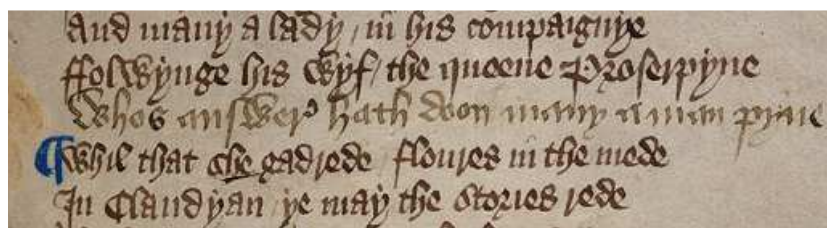 And many a lady / in his compaignye
ffolwynge his wyf / the queene Proserpyne
Whos answer hath doon many a man pyne
¶ Whil that she gadrede floures in the mede
In Claudyan ye may the stories rede